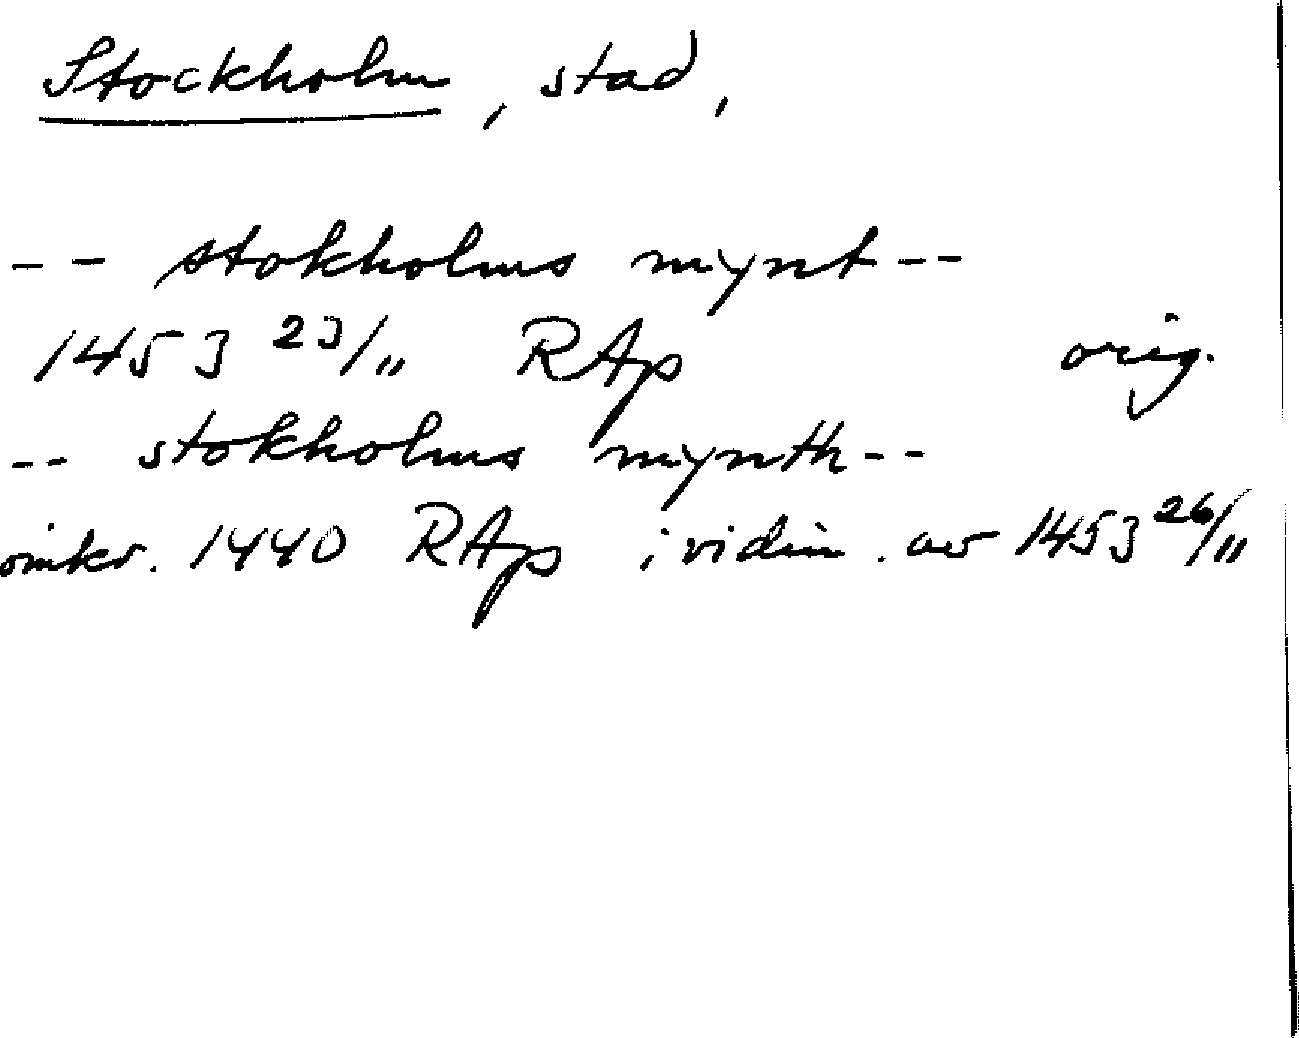 Stockholm, stad,
-- stokholms mynt --
1453 23/11 RAp orig.
-- stokholms mynth --
omkr. 1440 RAp i vidim. av 1453 26/11